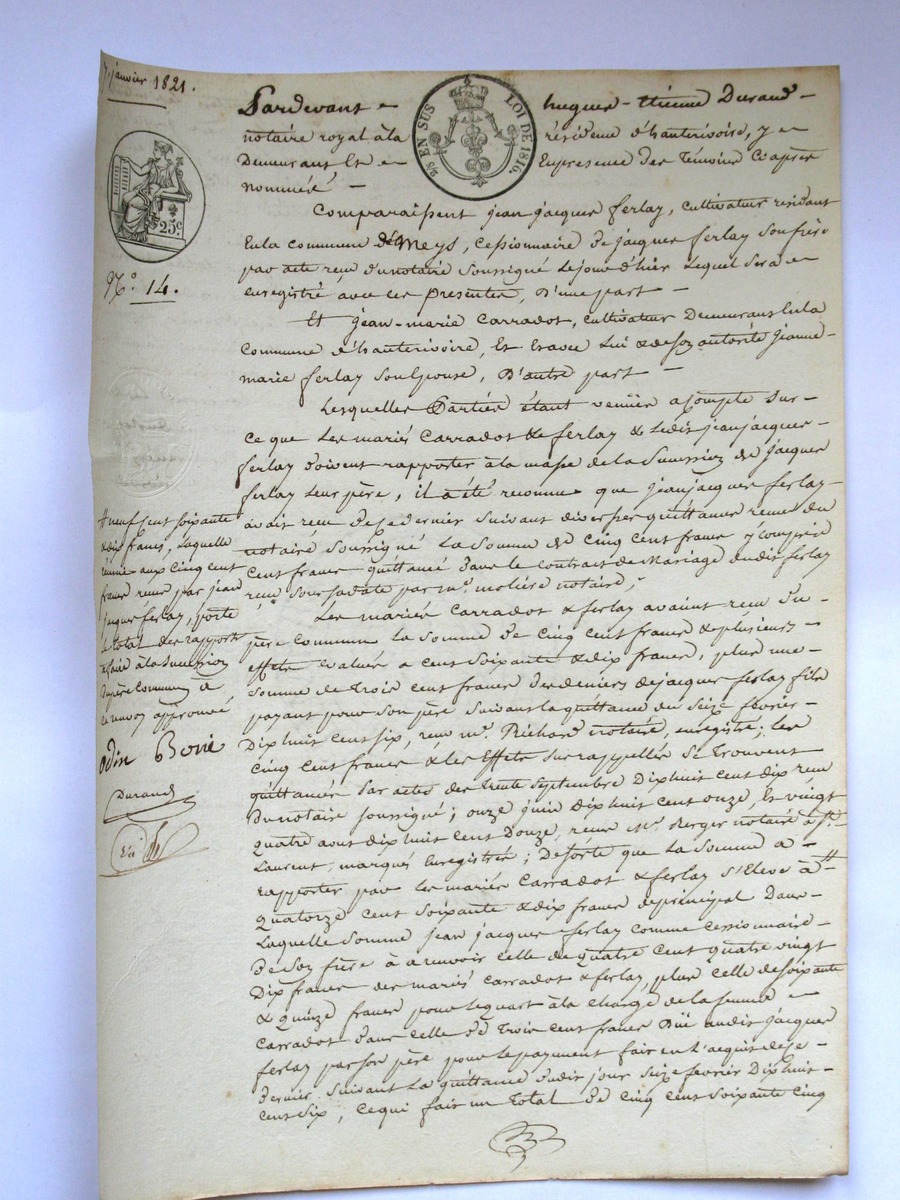 7. janvier 1821.
25 EN SUS
LOI DE 1816.
25c
N.o 14.
Pardevant hugues-étienne Durand
notaire royal à la résidence d'hauterivoire, y
Demeurant Et En presence des Témoins Ci après
nommés
Comparaissent jean jacques ferlay, cultivateur résidant
En la commune de Meys, cessionnaire de jacques ferlay son frère
par acte reçu du notaire soussigné le jour d'hier lequel sera
enregistré avec ces presentes, D'une part
Et jean-marie Carradot, cultivateur Demeurant En la
Commune d'hauterivoire, Et Avec Lui & de son autorité jeanne
marie ferlay son Epouse, D'autre part
Lesquelles Parties étant venües a Compte sur
Ce que Les mariés Carradot & ferlay & Ledit jean jacques
ferlay doivent rapporter à la masse de la Succession de jacques
ferlay Leur père, il a été reconnu que jean jacques ferlay
avait reçu de Ce dernier suivant diverses quittances reçues du
notaire soussigné La somme de cinq cent francs y compris
Cent francs quittancés Dans Le contrat de Mariage dudit ferlay
reçu sous sa date par me. molière notaire;
Les mariés Carradot & ferlay avaient reçu du
père commun La somme de cinq cent francs & plusieurs
effets évalués a cent soixante & dix francs, plus une
somme de Trois cent francs des deniers de jacques ferlay fils
payant pour son père suivant la quittance du seize fevrier
Dix huit cent six, reçu me. Richard notaire, enregistré; les
cinq cent francs & les Effets sus rappellés se trouvent
quittancés Par actes des trente septembre Dix huit cent dix reçu
Du notaire soussigné; onze juin dix huit cent onze, Et vingt
quatre aout dix huit cent Douze, reçus Me. Berger notaire à St.
Laurent, marqués Enregistrés; De sorte que La somme a
rapporter par Les mariés Carradot & ferlay s'Eleve à #
quatorze cent soixante & dix francs de principal Dans
Laquelle somme jean jacques ferlay comme cessionnaire
De son frère à a recevoir celle de quatre cent quatre vingt
Dix francs des mariés Carradot & ferlay, plus celle de soixante
& quinze francs pour le quart à la charge de la femme
Carradot dans celle de Trois cent francs Düe audit jacques
ferlay par son père pour le payement fait en l'acquis de ce
dernier suivant La quittance dudit jour seize fevrier Dix huit
cent six, ce qui fait un total de cinq cent soixante cinq
# neuf cent soixante
& dix francs, laquelle
réunie aux cinq cent
francs reçus par jean
jacques ferlay, porte
le total des rapports
a faire à la succession
du père commun à
ce renvoy approuvé
Durand